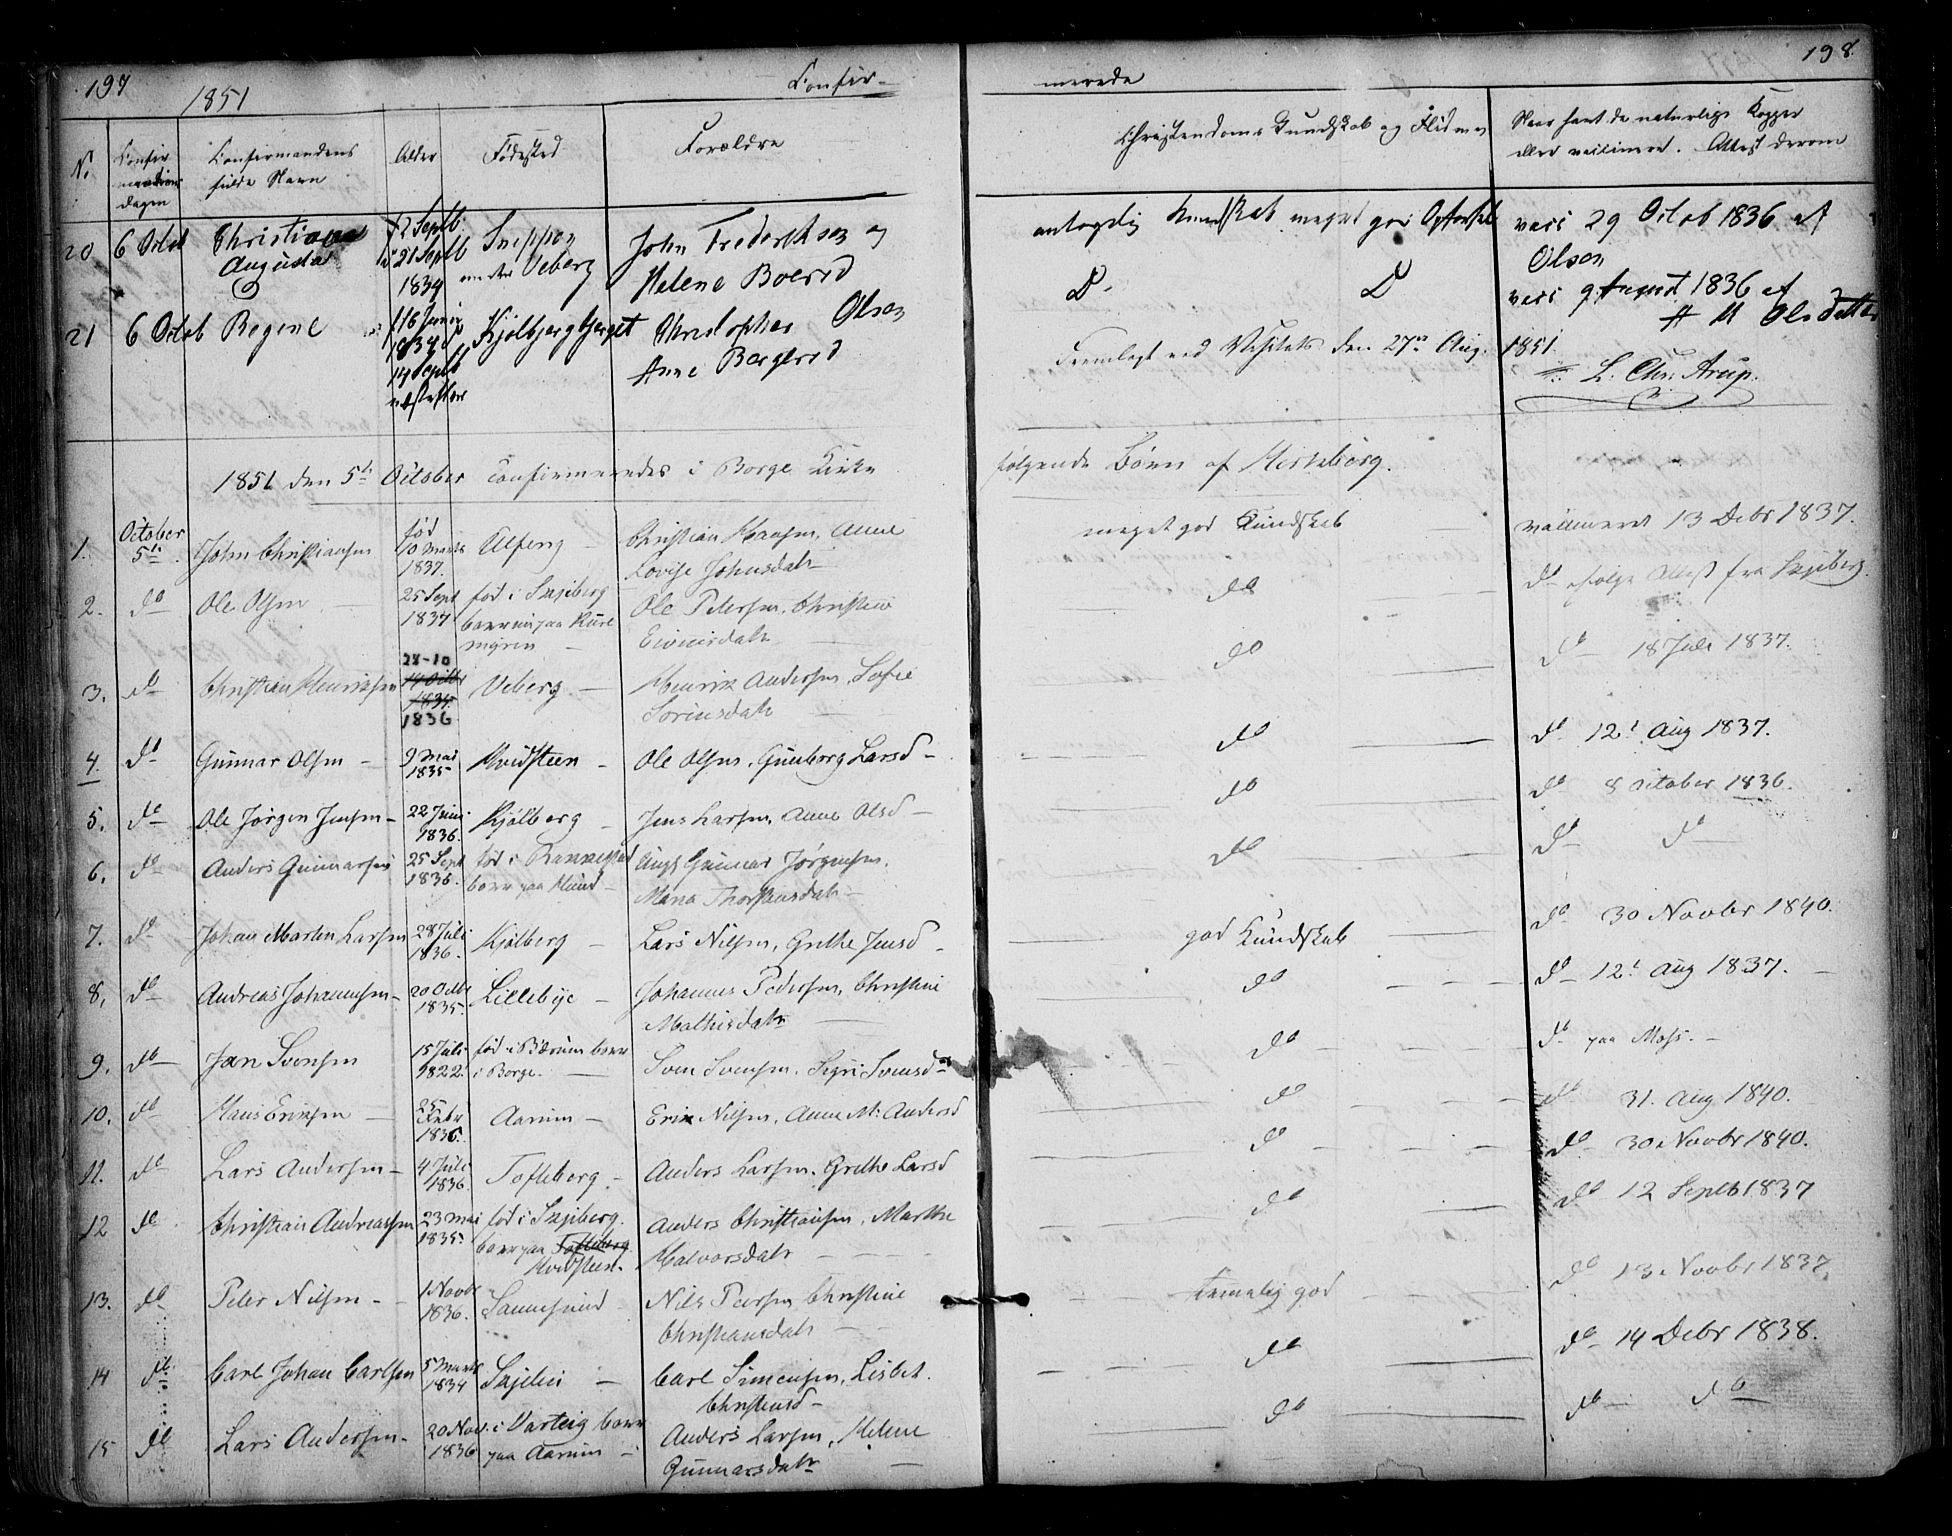 197
1851
Confir-
merede
198.
N.
Confirmations dagen
Confirmandens fulde Navn
Alder
Fødested
Forældre
Christendoms Kundskab og Flid
Naar havt de naturlige Kopper
eller vaccineret. Attest derom
20 6 Octob Christiane Augusta 21 Septb 1834 under Veberg John Frederiksen og Helene Boersd antagelig Kundskab meget god Opførsel vacc 29 Octob 1836 af Olsen
21 6 Octob Regine Kjølbjergbjerget Christopher Olsen Anne Borgersd D D vacc 9 August 1836 af A M Olsdatter
Fremlagt ved Visitats den 27de Aug. 1851
L. Chr. Arup.
1851 den 5te October confirmeredes i Borge Kirke følgende Børn af Herkebøig.
1. October 5te John Christiansen fød 10 Marts 1837. Ulfeng Christian Hansen, Anne Lovise Johnsdatr meget god Kundskab vaccineret 13 Debr 1837.
2. do Ole Olsen 25 Sept 1837 fød i Skjeberg Ole Petersen, Christine Eivindsdatr do do ifølge Attest fra Skjeberg.
3. do Christian Henriksen 28-10 1836 Veberg Henrik Andersen, Sofie Sørensdatr do do 18 Juli 1837.
4. do Gunnar Olsen 9 Mai 1835 Hvidsteen Ole Olsen, Gunborg Larsd do do 12t Aug 1837.
5. do Ole Jørgen Jensen 22 Juni 1836. Kjølberg Jens Larsen, Anne Olsd do do 8 October 1836.
6. do Anders Gunnarsen 25 Sept 1836. fød i Rakkestad boer paa Hund Gunnar Jørgensen, Maria Thorstensdatr do do do
7. do Johan Martin Larsen 28 Juli 1836. Kjølberg Lars Nilsen, Grethe Jensd god Kundskab do 30 Novbr 1840.
8. do Andreas Johannesen 20 Octbr 1835. Lillebye Johannes Pedersen, Christine Mathisdatr do do 12t Aug 1837.
9. do Jan Svensen 15 Juli 1822. fød i Bærum boer i Borge. Sven Svensen, Sigri Svensd do do paa Moss.
10. do Hans Eriksen 25 Febr 1836. Aarum Erik Nilsen, Anne M. Andersd do do 31. Aug 1840.
11. do Lars Andersen 4 Juli 1836. Tofteberg Anders Larsen, Grethe Larsd do do 30 Novbr 1840.
12 do Christian Andreassen 23 Mai 1835. fød i Skjeberg. boer paa Tofteberg Hvidsteen. Anders Christiansen, Marthe Halvorsdatr do do 12 Septb 1837
13. do Peter Nilsen 1 Novbr 1836. Sannesund Nils Persen, Christine Christiansdatr temmelig god do 13 Novbr 1837.
14 do Carl Johan Carlsen 5 Marts 1834 Skjelin Carl Simensen, Lisbet Christensd do do 14 Debr 1838.
15 do Lars Andersen 20 Nov. 1836 i Varteig boer paa Aarum Anders Larsen, Helene Gunnarsdatr do do do